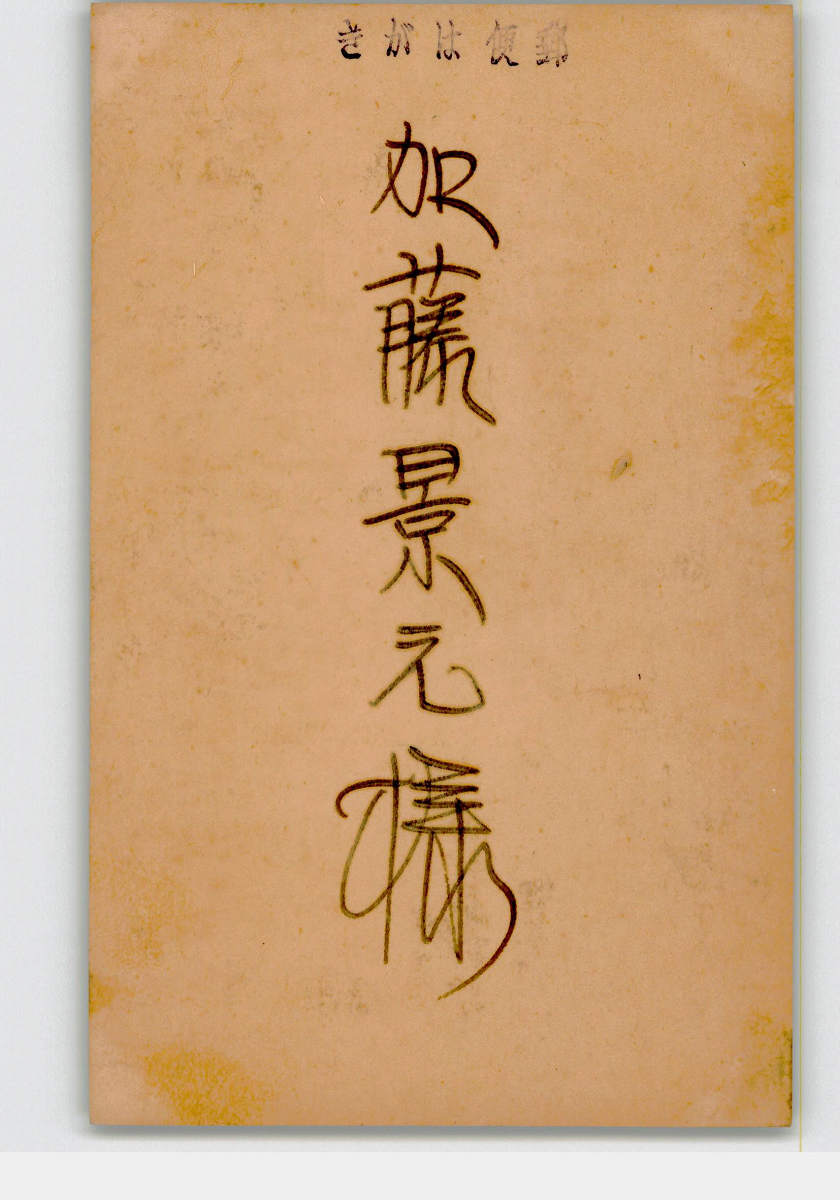 きがは便郵
加藤景元様